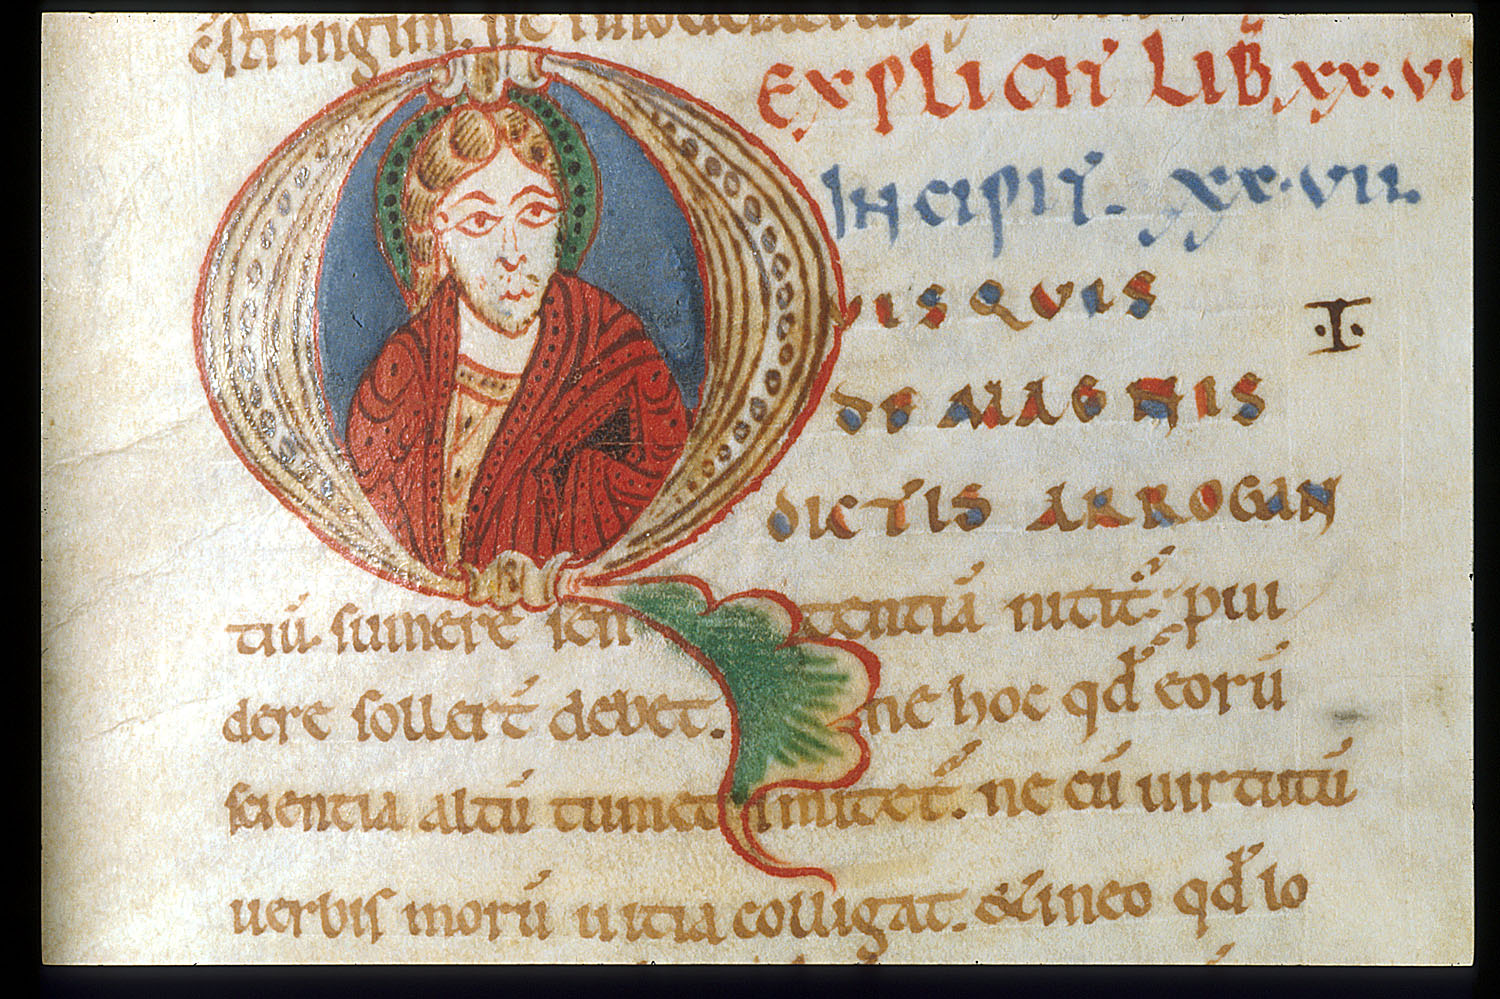 ēstringim. ne
EXPLICIT LIB̅. XX.VI
INCIPIT. XX.VII.
QUISQUIS
DE MAGNIS ·I·
DICTIS ARROGAN
tiū sumere sententiā nitit᷑. pui
dere sollert̄ debet. ne hoc qd̄ eorū
scientia altū tumet imitet᷑. ne cū uirtutū
uerbis morū uitia colligat. & in eo qd̄ lo